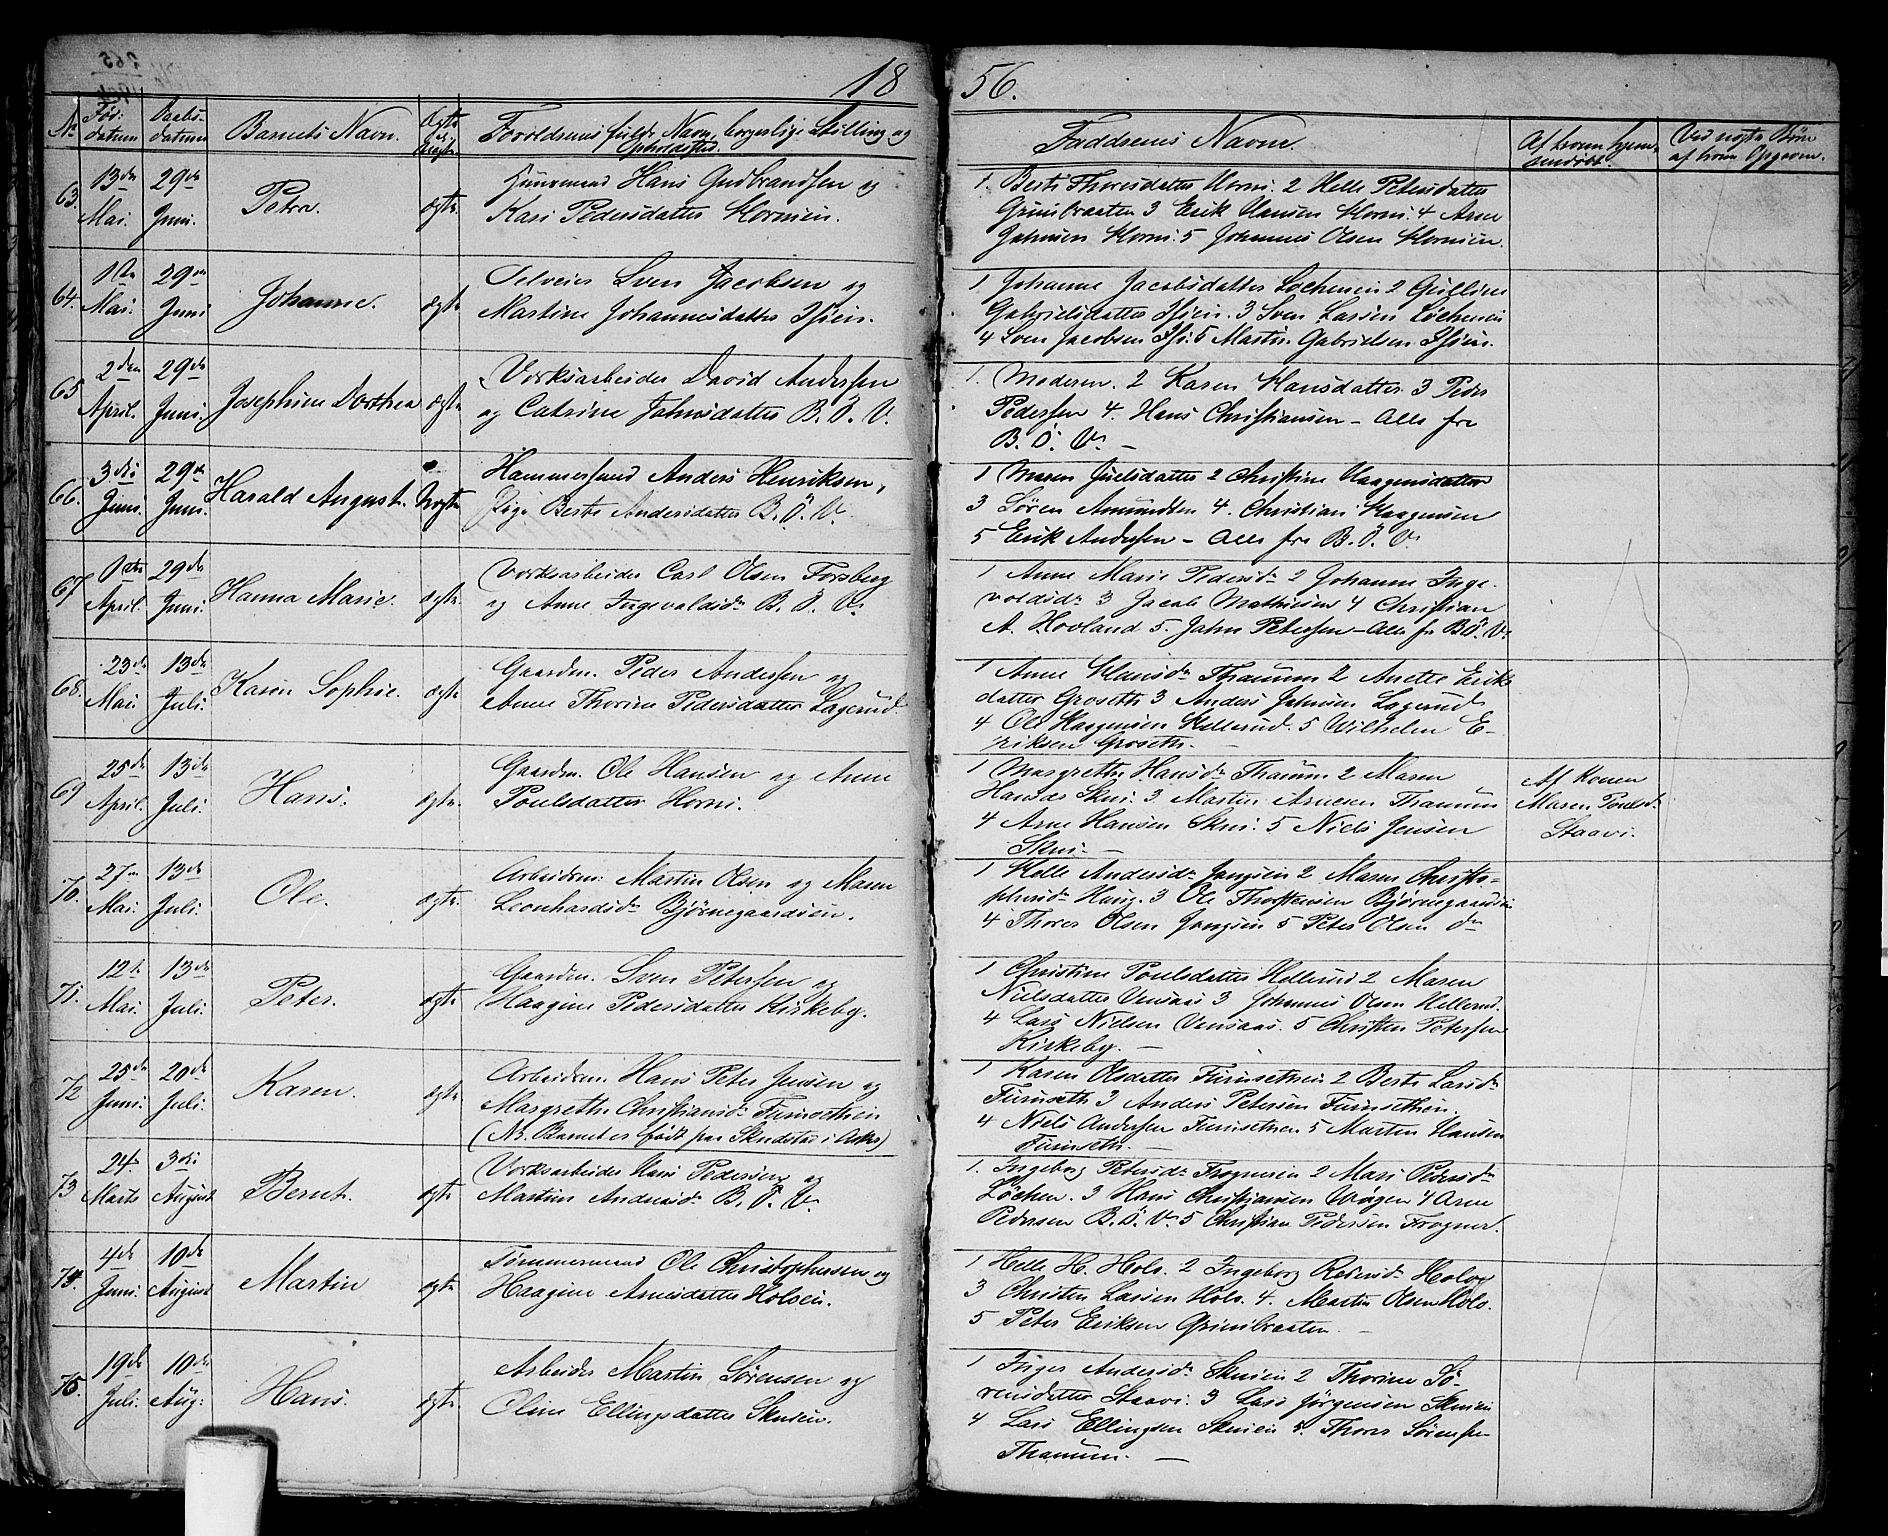 18 56.
No Fød: datum Daabs- datum Barnets Navn. Ægte el. Uægte Forældrenes fulde Navn, borgerlige Stilling og Opholdssted.
Faddernes Navne. Af hvem hjemmedøbt. Ved uægte Børn af hvem Opgaven.
63. 13de Mai. 29de Juni. Petra. ægte Huusmand Hans Gudbrandsen og
Kari Pedersdatter Hornsien.
1. Berte Thorsdatter Horni. 2 Helle Petersdatter
Grinibraaten 3 Erik Hansen Horni. 4 Arne
Jahnsen Horni. 5 Johannes Olsen Hornsien.
64. 1ste Mai. 29de Juni Johanne. ægte Selveier Sven Jacobsen og
Martine Johannesdatter
1 Johanne Jacobsdatter 2 Gulline
Gabrielsdatter 3 Sven Larsen
4 Sven Jacobsen 5 Martin Gabrielsen
65 2den April. 29de Juni. Josephine Dorthea ægte Værksarbeider David Andersen
og Catrine Jahnsdatter B. O. V.
1. Moderen. 2 Karen Hansdatter 3 Peder
Pedersen 4. Hans Christiansen – Alle fra
B. O. V. –
66. 3die Juni. 29de Juni. Harald August. Uægte Hammersmed Anders Henriksen,
Pige Berte Andersdatter B. O. V.
1 Maren Juelsdatter 2 Christine Haagensdatter
3 Sören Amundsen 4. Christian Haagensen
5 Erik Andersen – Alle fra B. O. V.
67. April. 29de Juni. Hanna Marie. ægte Værksarbeider Carl Olsen Forsberg
og Anne Ingevaldsdr B. O. V.
1 Anne Marie Pedersdr 2 Johanne Inge-
valdsdr 3 Jacob Mathisen 4 Christian
A. Hovland 5. Jahn Petersen – Alle fr B. O. V.
68. 23de Mai 13de Juli. Karen Sophie. ægte Gaardm. Peder Andersen og
Anne Thorine Pedersdatter Lagerud.
1 Anne Hansdr Thanum 2 Anette Erik-
datter Groseth 3 Anders Jahnsen Lagerud
4 Ole Haagensen Hellerud. 5 Wilhelm E-
riksen Groseth. –
69 25de April. 13de Juli. Hans. ægte Gaardm. Ole Hansen og Anne
Poulsdatter Horni.
1 Margrethe Hansdr Thanum 2 Maren
Hansdr Skui. 3 Martin Arnesen Thanum
4 Arne Hansen Skui. 5 Niels Jensen
Skui. –
Af Konen
Maren Poulsdr
Staavi.
70. 27de Mai. 13de Juli. Ole. ægte Arbeidsm: Martin Olsen og Maren
Leonhardsdr Bjørnegaardsien.
1 Helle Andersdr 2 Maren Christo-
phersdr Haug. 3 Ole Thorstensen Bjørnegaardsien
4 Thorer Olsen 5 Peter Olsen do
71. 12te Mai. 13de Juli. Peter. ægte Gaardm. Svend Petersen og
Haagine Pedersdatter Kirkeby.
1 Christine Poulsdatter Hellerud 2 Maren
Nielsdatter Vensaas 3 Johannes Olsen Hellerud.
4 Lars Nielsen Vensaas. 5 Christen Petersen
Kirkeby. –
72 25de Juni. 20de Juli. Karen. ægte Arbeidsm. Hans Peter Jensen og
Margrethe Christiansdr Furusethien
(NB. Barnet er født paa Skudstad i Asker)
1 Karen Olsdatter Furusethien 2 Berte Larsdr
Furuseth 3 Anders Petersen Furusethien.
4 Niels Andersen Furusethien 5 Martin Hansen
Furuseth. –
73 24. Marts 3die August Bernt. ægte Værksarbeider Hans Pedersen og
Martine Andersdr B. O. V.
1. Ingeborg Petersdr Frognersien 2 Mari Pedersdr
Løchen. 3 Hans Christiansen Wøyen 4 Arne
Pedersen B. O. V. 5 Christian Pedersen Frogner.
74. 4de Juni. 10de August Martin ægte Tømmermand Ole Christophersen og
Haagine Arnesdatter Holsien.
1 Helle H. Hols. 2 Ingeborg Hols
3 Christen Larsen Hols. 4. Martin Olsen Hols.
5 Peter Eriksen Grinibraaten –
75. 19de Juli. 10de Aug: Hans. ægte Arbeider Martin Sørensen og
Oline Ellingsdatter Skuien.
1 Inger Andersdr Skuien 2 Thorine Sø-
rensdatter Staavi. 3 Lars Jørgensen Skuien
4 Lars Ellingsen Skuien 4. Thorer Sørensen
Thanum. –